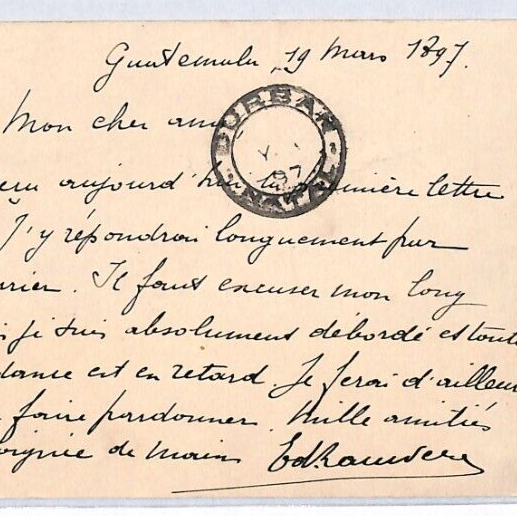 Guatemala, 19 Mars 1897.
Mon cher ami
DURBAN
97
NATAL
eçu aujourd'hui ta première lettre
J'y répondrai longuement par
rrier. Il faut excuser mon long
je suis absolument débordé et toute
dance est en retard. Je ferai d'ailleu
faire pardonner. Mille amitiés
oignée de main